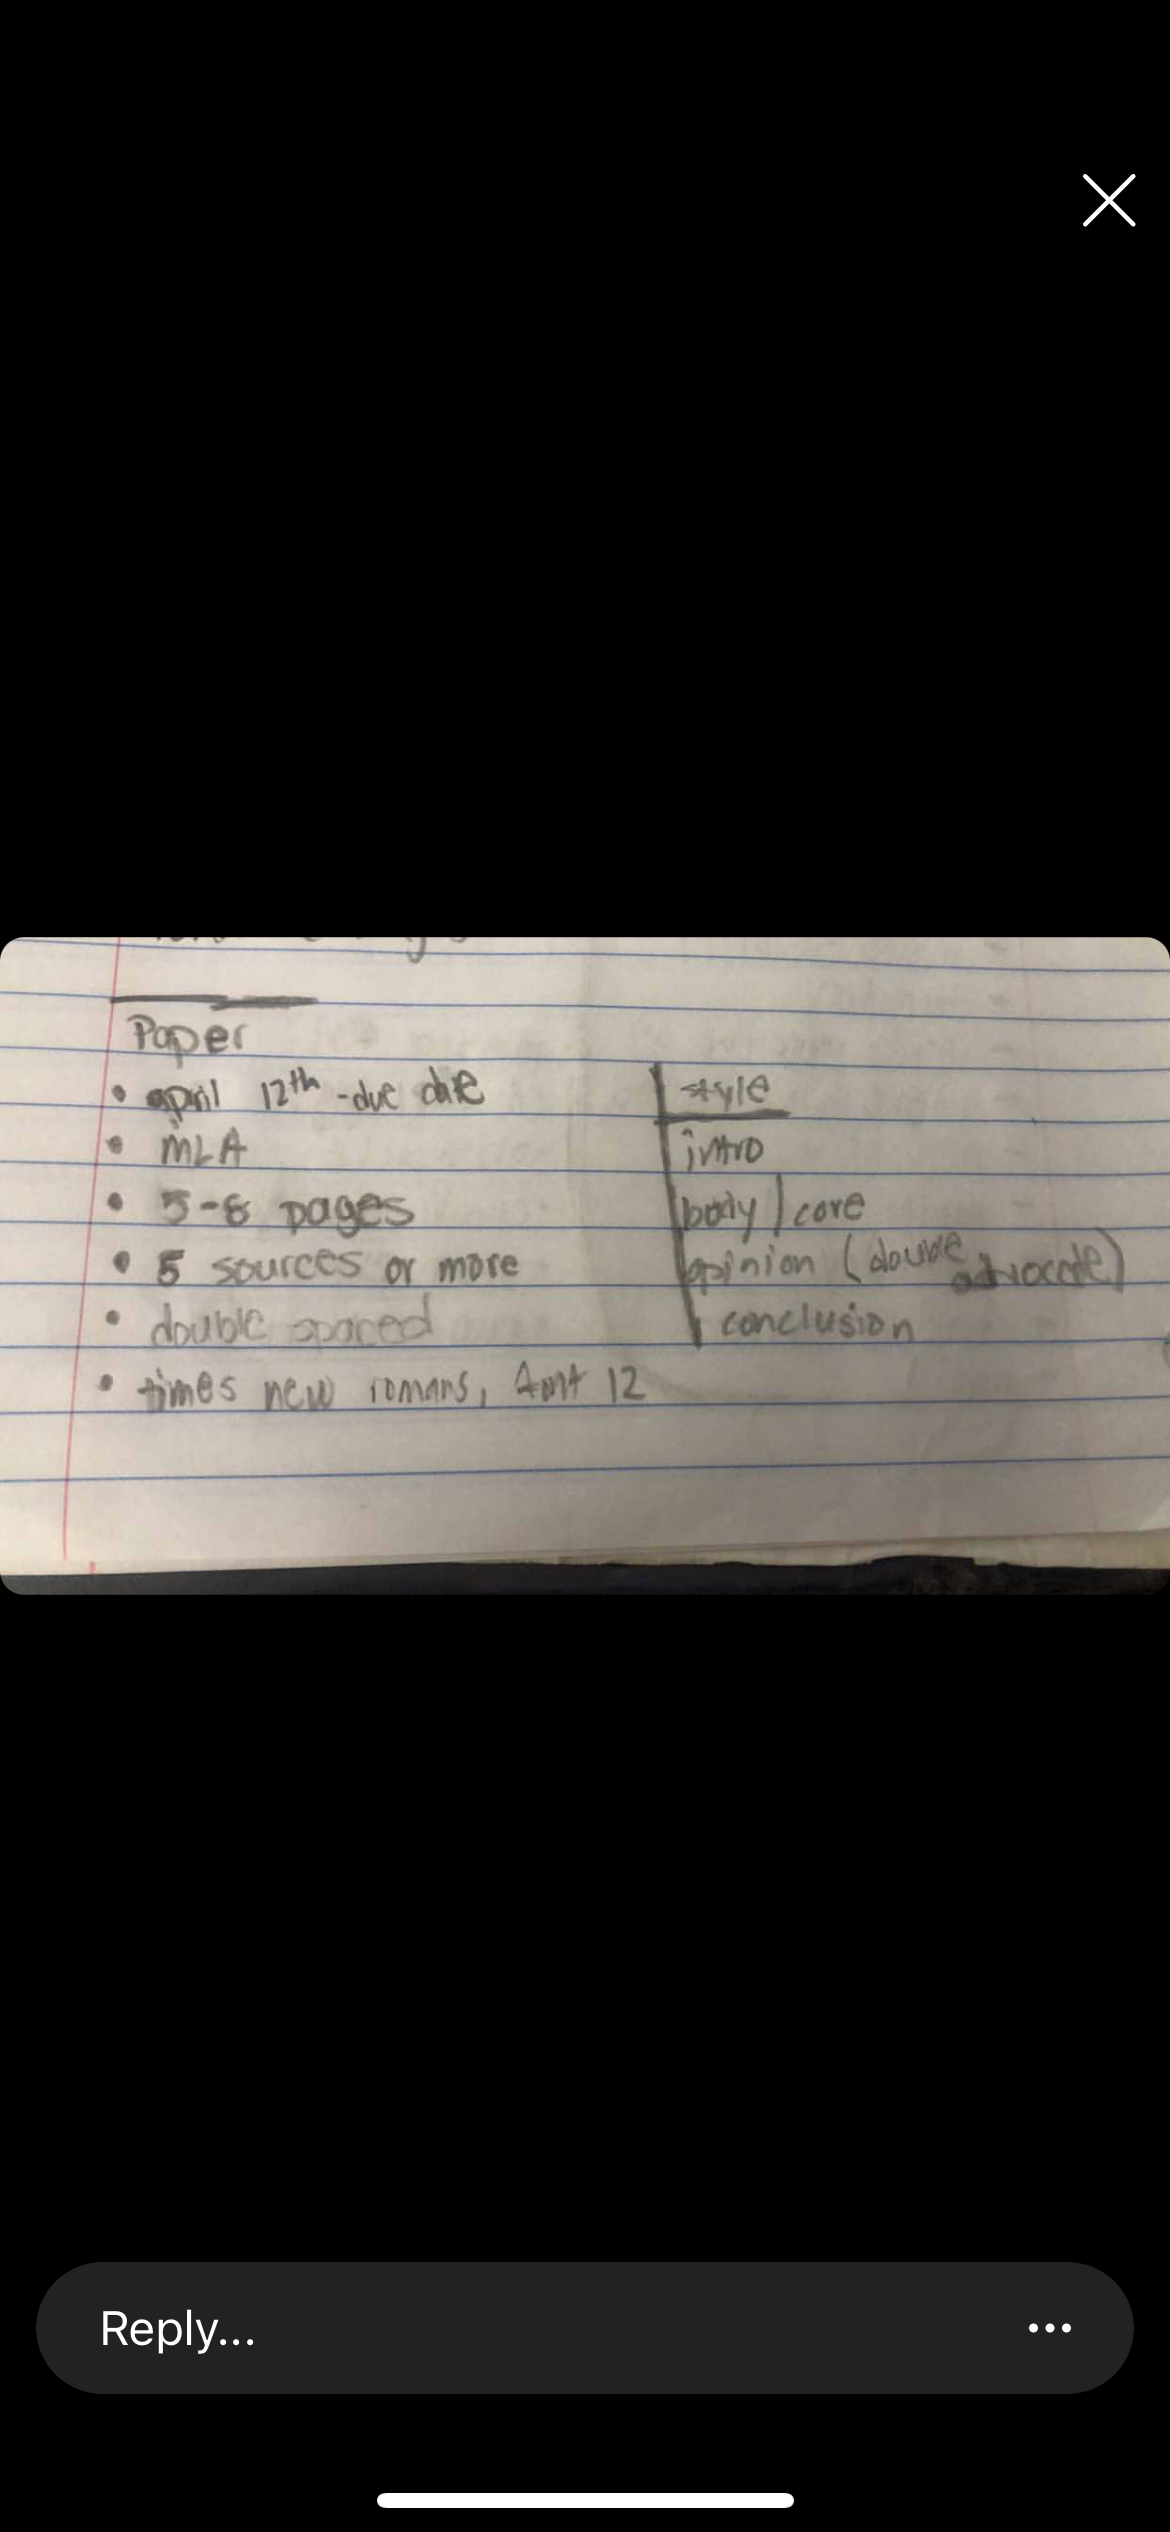 Paper
• april 12th -due date
• MLA
• 5-8 pages
• 5 sources or more
• double spaced
• times new romans, font 12
style
intro
body / core
opinion (double advocate)
conclusion
Reply...